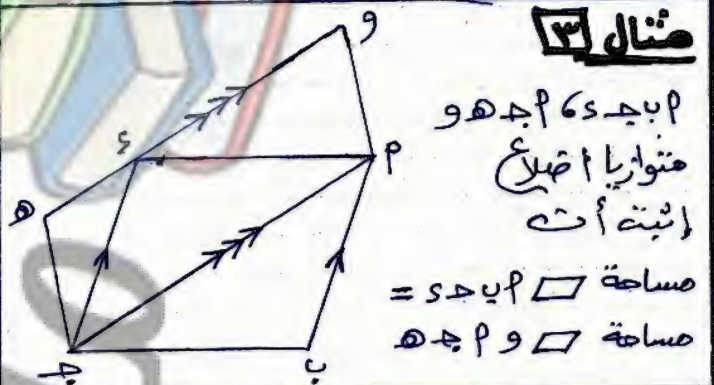 مثال ٣
أ ب ج د ، أ ج ه و
متوازيا أضلاع
إثبت أن
مساحة ▱ أ ب ج د =
مساحة ▱ و أ ج ه
و
د
أ
ه
ج
ب